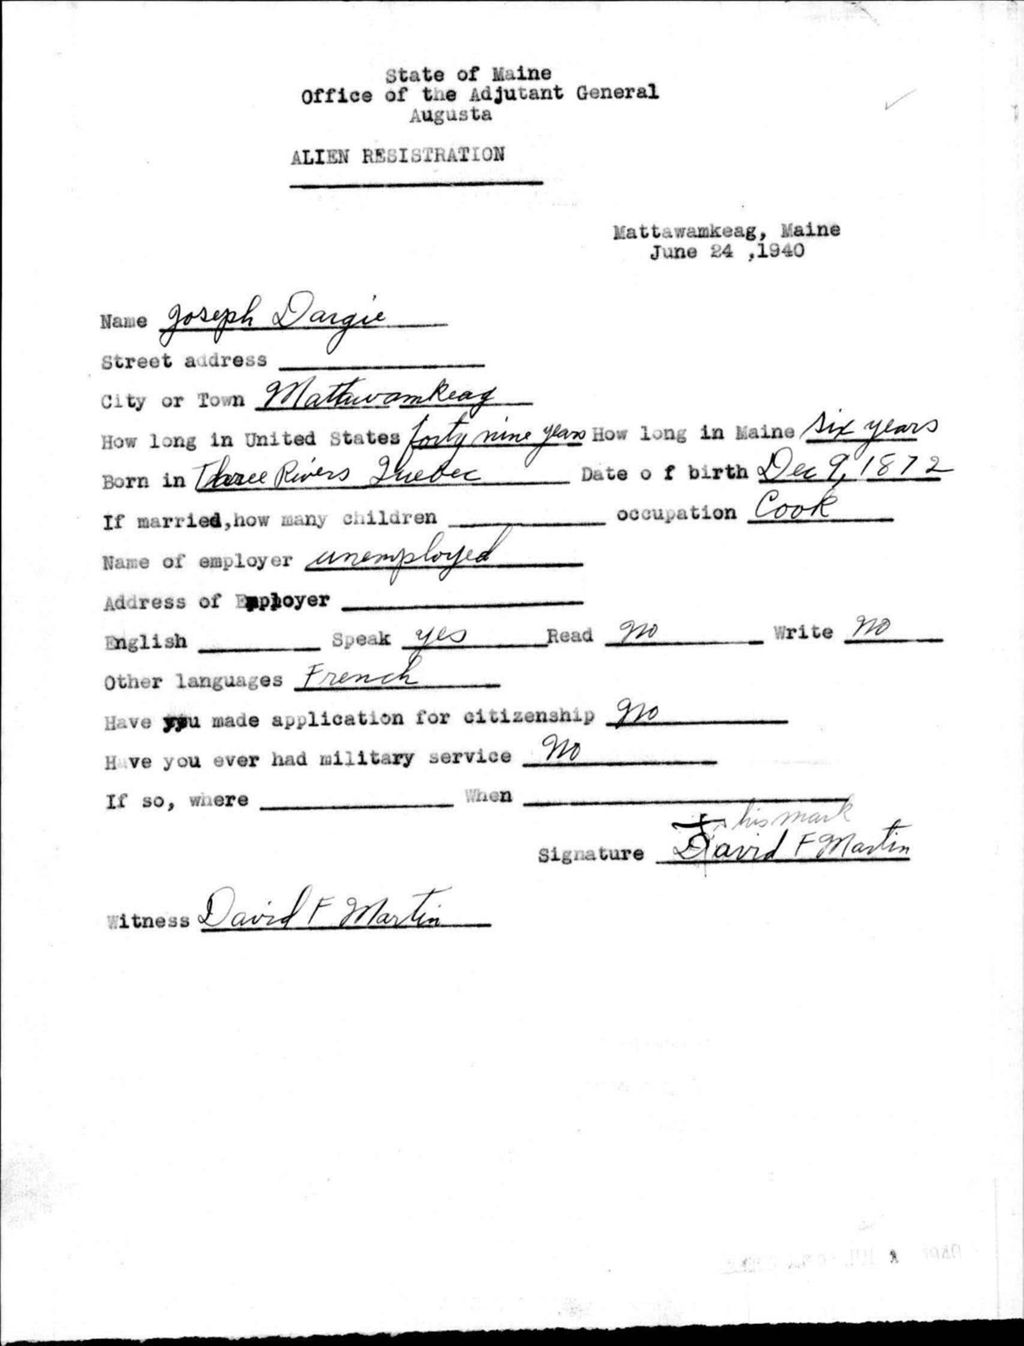 State of Maine
Office of the Adjutant General
Augusta
ALIEN RESISTRATION
Mattawamkeag, Maine
June 24 ,1940
Name Joseph Dargie
Street address
City or Town Mattawamkeag
How long in United States forty nine years How long in Maine six years
Born in Three Rivers Quebec Date o f birth Dec 9, 1872
If married,how many children occupation Cook
Name of employer unemployed
Address of Employer
English Speak yes Read No Write No
Other languages French
Have you made application for citizenship No
Have you ever had military service No
If so, where When
his mark
Signature David F Martin
Witness David F Martin